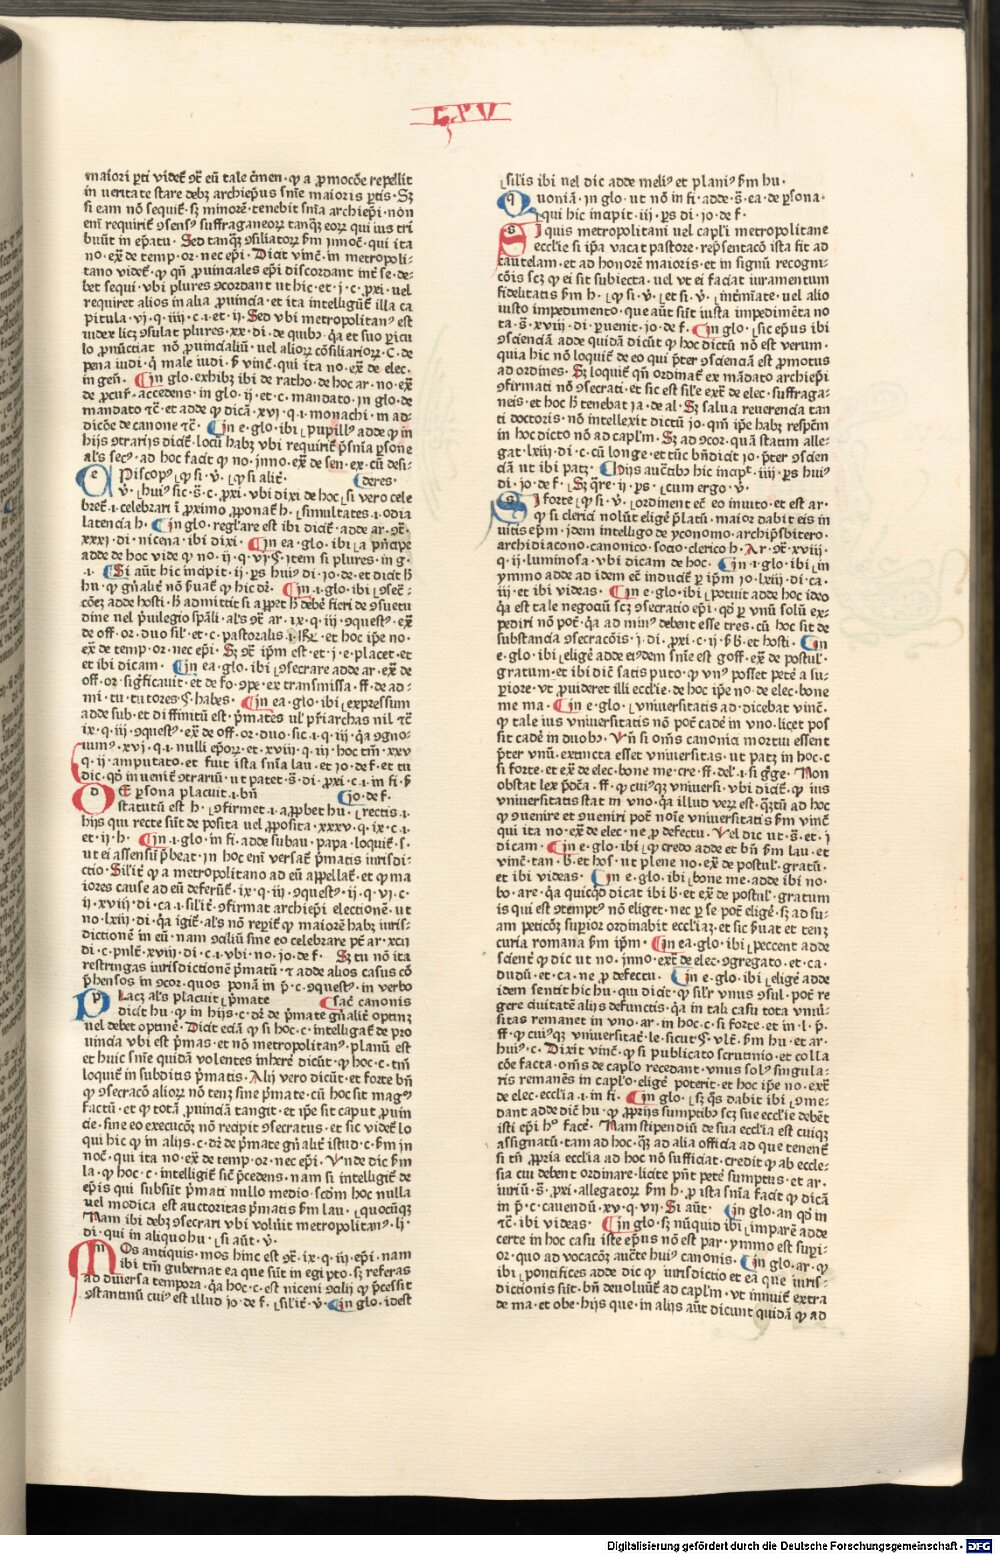 LXV
maiori ꝑti videt᷑ ꝯtra eū tale crimen · qꝫ a ꝓmocõe repellit
in ueritate stare debꝫ archiep̃us snĩe maioris ꝑtis · Sꝫ
si eam nõ sequit᷑ · sꝫ minorẽ · tenebit snĩa archiep̃i · non
buũt in ep̃atu · Sed tanqꝫ ꝯsiliatorꝫ ẜm innoc̃ · qui ita
no · ex̃ de temp · or · nec ep̃i · Dicit vinc̃ · in metropoli-
tano videt᷑ · qꝫ qñ ꝓuinciales ep̃i discordant int̃ se · de-
bet sequi · vbi plures ꝯcordant ut hic · et · j · c · ꝓxi · uel
requiret alios in alia ꝓuincia · et ita intelligũt᷑ illa ca
pitula · vj · q · iiij · c · i · et · ij · Sed vbi metropolitanꝰ est
iudex licꝫ ꝯsulat plures · xx · di · de quibꝰ · q̃a et suo ꝑicu
lo ꝓnũciat nõ ꝓuincialiũ · uel aliorꝫ cõsiliariorꝫ · C · de
pena iudi · q̃ male iudi · ẜ vinc̃ · qui ita no · ex̃ de elec ·
in geñ · In glo · exhibꝫ ibi de ratho · de hoc ar · no · ex̃
de ꝓcur̃ · accedens · in glo · ij · et · c · mandato · in glo · de
mandato tc̃ · et adde qꝫ dicã · xvj · q · i · monachi · in ad-
dicõe de canone tc̃ · In e · glo · ibi · pupillꝰ adde qꝫ in
hijs ꝯtrarijs dicit᷑ · locũ habꝫ vbi requirit᷑ p̃snĩa ꝑsone
als secꝰ · ad hoc facit qꝫ no · jnno · ex̃ de sen · ex · cũ desi-
Episcopꝰ · qꝫ si · v̑ · qꝫ si alit̃ · deres ·
v̑ · huiꝰ sic · s̃ · c · ꝓxi · vbi dixi de hoc · si vero cele
bret᷑ · i · celebrari ĩ ꝓximo ꝓponat᷑ h · simultates · i · odia
latencia h · In glo · reglare est ibi dicit᷑ · adde ar · ꝯtra ·
xxxj · di · nicena · ibi dixi · In ea · glo · ibi · a p̃ncipe
adde de hoc vide qꝫ no · ij · q · vj · §· item si plures · in g ·
i · Si aũt hic incipit · ij · ps huiꝰ di · jo · de · et dicit ẜ
hu · qꝫ gñalit᷑ nõ ẜuat᷑ qꝫ hic dr̃ · In · i · glo · ibi · ꝯsec̃-
dine uel p̃uilegio spãli · als ꝯtra ar · ix · q · iij · ꝯquestꝰ · ex̃
de off · or · duo sil̃ · et · c · pastoralis
ex̃ de temp · or · nec ep̃i · Sꝫ ꝯtra ip̃m est · et · j · e · placet · et
et ibi dicam · In ea · glo · ibi · ꝯsecrare adde ar · ex̃ de
off · or · sigficauit · et de fo · ꝯpe · ex transmissa · ff · de ad-
mi · tu · tutores · §· habes · In ea · glo · ibi · expressum
adde sub · et diffinitũ est · p̃mates ul̃ pr̃iarchas nil tc̃
ix · q · iij · ꝯquestꝰ · ex̃ de off · or · duo · sic · i · q · ij · q̃a ꝯgno-
uimꝰ · xvj · q · i · nulli ep̃orꝫ · et · xviij · q · ij · hoc tm̃ · xxv
q · ij · amputato · et fuit ista snĩa lau · et · jo · de f · et tu
dic · qo᷑ inuenit᷑ ꝯtrariũ · ut patet · s̃ · di · ꝓxi · c · i · in fi · ẜ
De ꝑsona placuit · i · bñ jo · de f ·
statutũ est h · ꝯfirmet · i · aꝓpbet hu · rectis · i ·
hijs qui recte sũt de posita uel ꝓposita · xxxv · q · ix · c · i ·
et · ij · h · In · i · glo · in fi · adde subau · papa · loquit᷑ · s ·
ut ei assensũ p̃beat · jn hoc em̃ versat᷑ p̃matis iurisdi-
ctio · Silit᷑ qꝫ a metropolitano ad eũ appellat᷑ · et qꝫ ma
iores cause ad eũ deferũt᷑ · ix · q · iij · ꝯquestꝰ · ij · q · vj · c ·
ij · xviij · di · ca · i · silit᷑ · ꝯfirmat archiep̃i electionẽ · ut
no · lxiij · di · q̃a igit᷑ · als nõ reperit᷑ qꝫ maiorẽ habꝫ iuris-
dictionẽ in eũ · nam ꝯciliũ sine eo celebrare põt᷑ ar · xcij
di · c · pnl̃t᷑ · xviij · di · c · i · vbi · no · jo · de f · Sꝫ tu nõ ita
restringas iurisdictionẽ p̃matũ · ⁊ adde alios casus cõ
p̃hensos in ꝯcor · quos ponã in p̃ · c · ꝯquestꝰ · in verbo
Placꝫ als placuit · p̃mate sac̃ canonis
dicit hu · qꝫ in hijs · c · dr̃ de p̃mate gñalit᷑ optinꝫ
uel debet optinẽ · Dicit eciã qꝫ si hoc · c · intelligat᷑ de pro
uincia vbi est p̃mas · et nõ metropolitanꝰ · planũ est
et huic snĩe quidã volentes inherẽ dicũt · qꝫ hoc · c · tm̃
loquit᷑ in subditis p̃matis · Alij vero dicũt · et forte bñ
qꝫ ꝯsecracõ aliorꝫ nõ tenꝫ sine p̃mate · cũ hoc sit magꝰ
factũ · et qꝫ totã ꝓuinciã tangit · et ip̃e sit caput ꝓuin
cie · sine eo execucõꝫ nõ recipit ꝯsecratus · et sic videt᷑ lo
qui hic qꝫ in alijs · c · dr̃ de p̃mate gñalit᷑ istud · c · ẜm in
noc̃ · qui ita no · ex̃ de temp · or · nec ep̃i · Vnde dic ẜm
la · qꝫ hoc · c · intelligit᷑ sic̃ p̃cedens · nam si intelligit᷑ de
ep̃is qui subsũt p̃mati nullo medio · scd̃m hoc nulla
uel modica est auctoritas p̃matis ẜm lau · quocũqꝫ
Nam ibi debꝫ ꝯsecrari vbi voluit metropolitanꝰ · lj ·
di · qui in aliquo hu · si aũt · v̑ ·
Mos antiquis · mos hinc est ꝯtra · ix · q · iij · ep̃i · nam
ibi tm̃ gubernat ea que sũt in egipto · sꝫ referas
ad diuersa tempora · q̃a hoc · c · est niceni ꝯcilij qꝫ p̃cessit
ꝯstantinũ cuiꝰ est illud jo · de f · silit᷑ · v̑ · In glo · idest
silis ibi uel dic adde meliꝰ et planiꝰ ẜm hu ·
Quoniã · in glo · ut no in fi · adde · s̃ · ea · de ꝑsona ·
qui hic incipit · iij · ps di · jo · de f ·
Si quis metropolitani uel capl̃i metropolitane
ecclie si ip̃a vacat pastore · rep̃sentacõ ista fit ad
cautelam · et ad honorẽ maioris · et in signũ recogni-
cõis scꝫ qꝫ ei sit subiecta · uel vt ei faciat iuramentum
fidelitatis ẜm h · qꝫ si · v̑ · et si · v̑ · int̃mĩate · uel alio
iusto impedimento · que aũt sũt iusta impedimẽta no
ta · s̃ · xviij · di · ꝑuenit · jo · de f · In glo · sic ep̃us ibi
ꝯsciencia adde quidã dicũt qꝫ hoc dictũ nõ est verum ·
quia hic nõ loquit᷑ de eo qui p̃ter ꝯscienciã est ꝓmotus
ad ordines · Sꝫ loquit᷑ qñ ordinat᷑ ex mãdato archiep̃i
ꝯfirmati nõ ꝯsecrati · et sic est sil̃e ex̃t de elec · suffraga-
neis · et hoc ẜ tenebat ja · de al · Sꝫ salua reuerencia tan
ti doctoris · nõ intellexit dictũ jo · qm̃ ip̃e habꝫ respc̃m
in hoc dicto nõ ad capl̃m · Sꝫ ad ꝯcor · quã statim alle-
gat · lxiij · di · c · cũ longe · et tũc bñ dicit jo · p̃ter ꝯscien
ciã ut ibi patꝫ · Hijs auc̃tibꝰ hic incipit᷑ · iiij · ps huiꝰ
di · jo · de f · Sꝫ q̃re · ij · ps · cum ergo · v̑ ·
Si forte · qꝫ si · v̑ · ordinent ec̃ eo inuito · et est ar ·
qꝫ si clerici nolũt eligẽ p̃latũ · maior dabit eis in
uitis ep̃m · jdem intelligo de yconomo · archip̃sbitero ·
archidiacono · canonico · socio · clerico h · Ar · ꝯtra · xviij ·
q · ij · luminosa · vbi dicam de hoc · In · i · glo · ibi · in
ymmo adde ad idem ec̃ inducit᷑ ꝑ ip̃m jo · lxiij · di · ca ·
iij · et ibi videas · In e · glo · ibi · potuit adde hoc ideo
q̃a est tale negociũ scꝫ ꝯsecratio ep̃i · qo᷑ ꝑ vnũ solũ ex-
pediri nõ pot᷑ · q̃a ad minꝰ debent esse tres · cũ hoc sit de
substancia ꝯsecracõis · j · di · ꝓxi · c · ij · ẜ b · et hosti · In
e · glo · ibi · eligẽ adde eiꝰdem snĩe est goff · ex̃ de postul̃ ·
gratum · et ibi dic̃ satis puto · qꝫ vnꝰ posset petẽ a su-
ꝑiore · vt ꝓuideret illi ecclie · de hoc ip̃e no · de elec · bone
me ma · In e · glo · vniuersitatis · ad dicebat vinc̃ ·
qꝫ tale ius vniuersitatis nõ pot᷑ cadẽ in vno · licet pos
sit cadẽ in duobꝰ · Vñ si om̃s canonici mortui essent
p̃ter vnũ · extincta esset vniuersitas · ut patꝫ in hoc · c ·
si forte · et ex̃ de elec · bone me · cre · ff · del̃ · i · si g̃ge · Non
obstat lex p̃dc̃a · ff · qꝫ cuiꝰqꝫ vniuersi · vbi dicit᷑ · qꝫ ius
vniuersitatis stat in vno · q̃a illud verꝫ est · q̃ꝫtũ ad hoc
qꝫ ꝯuenire et ꝯueniri pot᷑ noĩe vniuersitatis ẜm vinc̃
qui ita no · ex̃ de elec · ne ꝓ defectu · Vel dic ut · s̃ · et · j
dicam · In e · glo · ibi · qꝫ credo adde et bñ ẜm lau · et
vinc̃ · tan · b̃ · et hos̃ · ut plene no · ex̃ de postul̃ · gratũ ·
et ibi videas · In e · glo · ibi · bone me · adde ibi no ·
bo · are · q̃a quicqo᷑ dicat ibi b̃ · et ex̃ de postul̃ · gratum
is qui est ꝯtemptꝰ nõ eliget · nec ꝑ se pot᷑ eligẽ · sꝫ ad su-
am peticõꝫ suꝑior ordinabit eccliaꝫ · et sic ẜuat et tenꝫ
curia romana ẜm ip̃m · In ea · glo · ibi · peccent adde
scient᷑ qꝫ dic ut no · jnno · ex̃t de elec · ꝯgregato · et · ca ·
dudũ · et · ca · ne ꝓ defectu · In e · glo · ibi · eligẽ adde
idem sentit hic hu · qui dicit · qꝫ sil̃r vnus ꝯsul · pot᷑ re
gere ciuitatẽ alijs defunctis · q̃a in tali casu tota vniũ-
sitas remanet in vno · ar · in hoc · c · si forte · et in · l · p̃ ·
ff · qꝫ cuiꝰqꝫ vniuersitat᷑ · le · sicut · §· vlt᷑ · ẜm hu · et ar ·
huiꝰ · c · Dixit vinc̃ · qꝫ si publicato scrutinio · et colla
cõe facta · om̃s de capl̃o recedant · vnus solꝰ singula-
ris remanẽs in capl̃o · eligẽ poterit · et hoc ip̃e no · ex̃t
de elec · ecclia · i · in fi · In glo · sꝫ q̃s dabit ibi · ꝯme-
dant adde dic̃ hu · qꝫ ꝓprijs sumptibꝰ scꝫ sue ecclie debẽt
isti ep̃i ho᷑ facẽ · Nam stipendiũ de sua ecclia est cuiqꝫ
assignatũ · tam ad hoc · qꝫ ad alia officia ad que tenent᷑
si tñ ꝓpria ecclia ad hoc nõ sufficiat · credit᷑ qꝫ ab eccle-
sia cui debent ordinare · licite pñt petẽ sumptus · et ar ·
iuriũ · s̃ · ꝓxi · allegatorꝫ ẜm h · ꝓ ista snĩa facit qꝫ dicã
in p̃ · c · cauendũ · xv · q · vij · Si aũt · In glo · an qo᷑ in
tc̃ · ibi videas · In glo · sꝫ nũquid ibi · imparẽ adde
certe in hoc casu iste ep̃us nõ est par · ymmo est suꝑi-
or · quo ad vocacõꝫ auc̃te huiꝰ canonis · In glo · ar · qꝫ
ibi · pontifices adde dic qꝫ iurisdictio et ea que iuris-
dictionis sũt · bñ deuoluũt᷑ ad capl̃m · vt innuit᷑ extra
de ma · et obe · hijs que · in alijs aũt dicunt quidã qꝫ ad
Digitalisierung gefördert durch die Deutsche Forschungsgemeinschaft · DFG